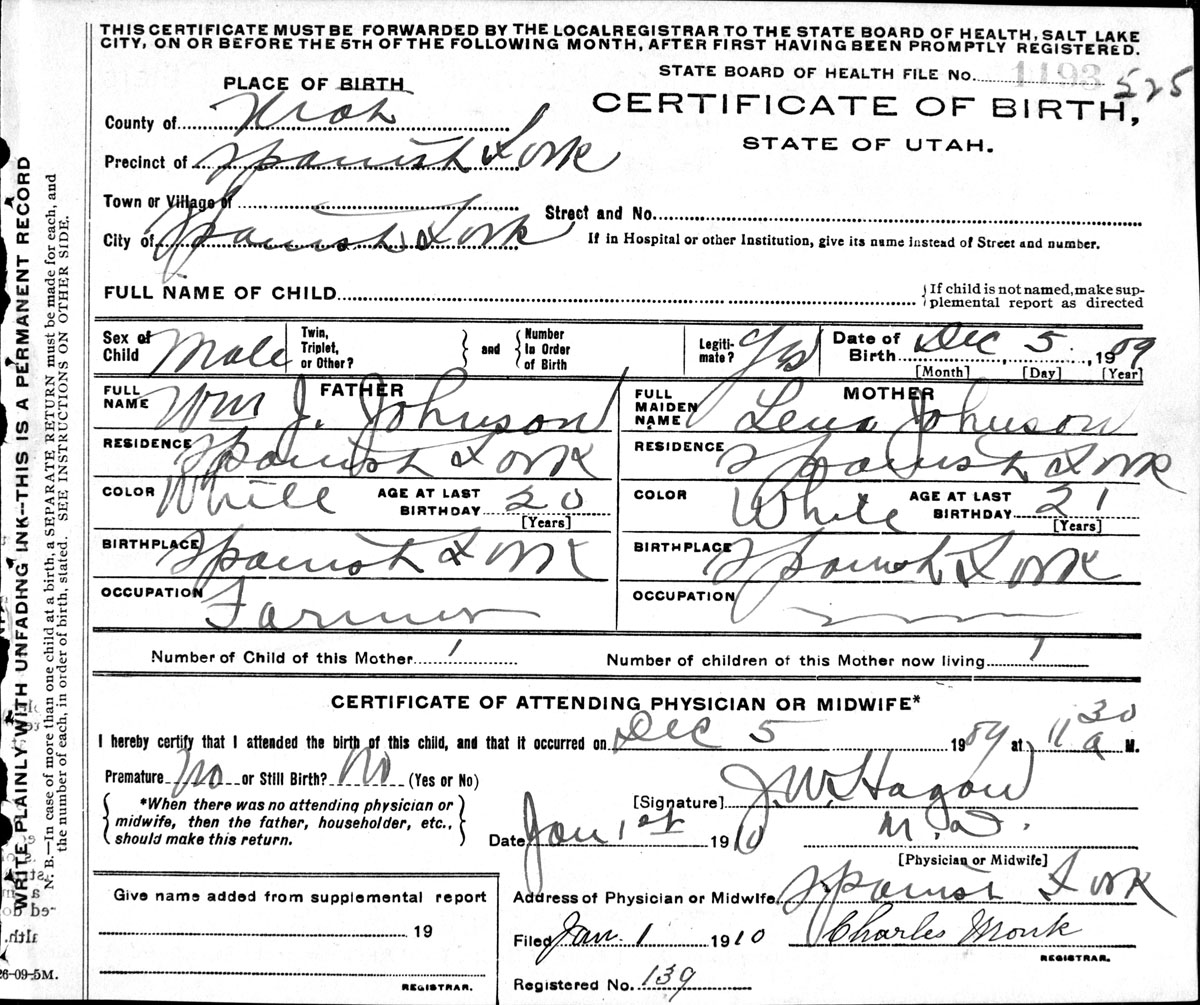 THIS CERTIFICATE MUST BE FORWARDED BY THE LOCALREGISTRAR TO THE STATE BOARD OF HEALTH, SALT LAKE
CITY, ON OR BEFORE THE 5TH OF THE FOLLOWING MONTH, AFTER FIRST HAVING BEEN PROMPTLY REGISTERED.
STATE BOARD OF HEALTH FILE No. 1193 525
PLACE OF BIRTH
CERTIFICATE OF BIRTH,
STATE OF UTAH.
County of Utah
Precinct of Spanish Fork
Town or Village of
Street and No.
City of Spanish Fork
If in Hospital or other Institution, give its name instead of Street and number.
FULL NAME OF CHILD
{If child is not named, make sup-
plemental report as directed
Sex of Child Male
Twin, Triplet, or Other? } and { Number In Order of Birth
Legiti-mate? Yes
Date of Birth Dec 5, 1909
[Month] [Day] [Year]
FATHER
FULL NAME Wm J. Johnson
RESIDENCE Spanish Fork
COLOR White AGE AT LAST BIRTHDAY 20
[Years]
BIRTHPLACE Spanish Fork
OCCUPATION Farmer
MOTHER
FULL MAIDEN NAME Lena Johnson
RESIDENCE Spanish Fork
COLOR White AGE AT LAST BIRTHDAY 21
[Years]
BIRTHPLACE Spanish Fork
OCCUPATION
Number of Child of this Mother 1 Number of children of this Mother now living 1
CERTIFICATE OF ATTENDING PHYSICIAN OR MIDWIFE*
I hereby certify that I attended the birth of this child, and that it occurred on Dec 5 1909 at 11 30 a M.
Premature No or Still Birth? No (Yes or No)
{ *When there was no attending physician or
midwife, then the father, householder, etc.,
should make this return. }
[Signature] J. W. Hagan
M.D.
Date Jan 1st 1910
[Physician or Midwife]
Give name added from supplemental report
19
REGISTRAR.
Address of Physician or Midwife Spanish Fork
Filed Jan. 1 1910 Charles Monk
REGISTRAR.
Registered No. 139
WRITE PLAINLY WITH UNFADING INK--THIS IS A PERMANENT RECORD
N. B.—In case of more than one child at a birth, a SEPARATE RETURN must be made for each, and
the number of each, in order of birth, stated. SEE INSTRUCTIONS ON OTHER SIDE.
26-09-5M.